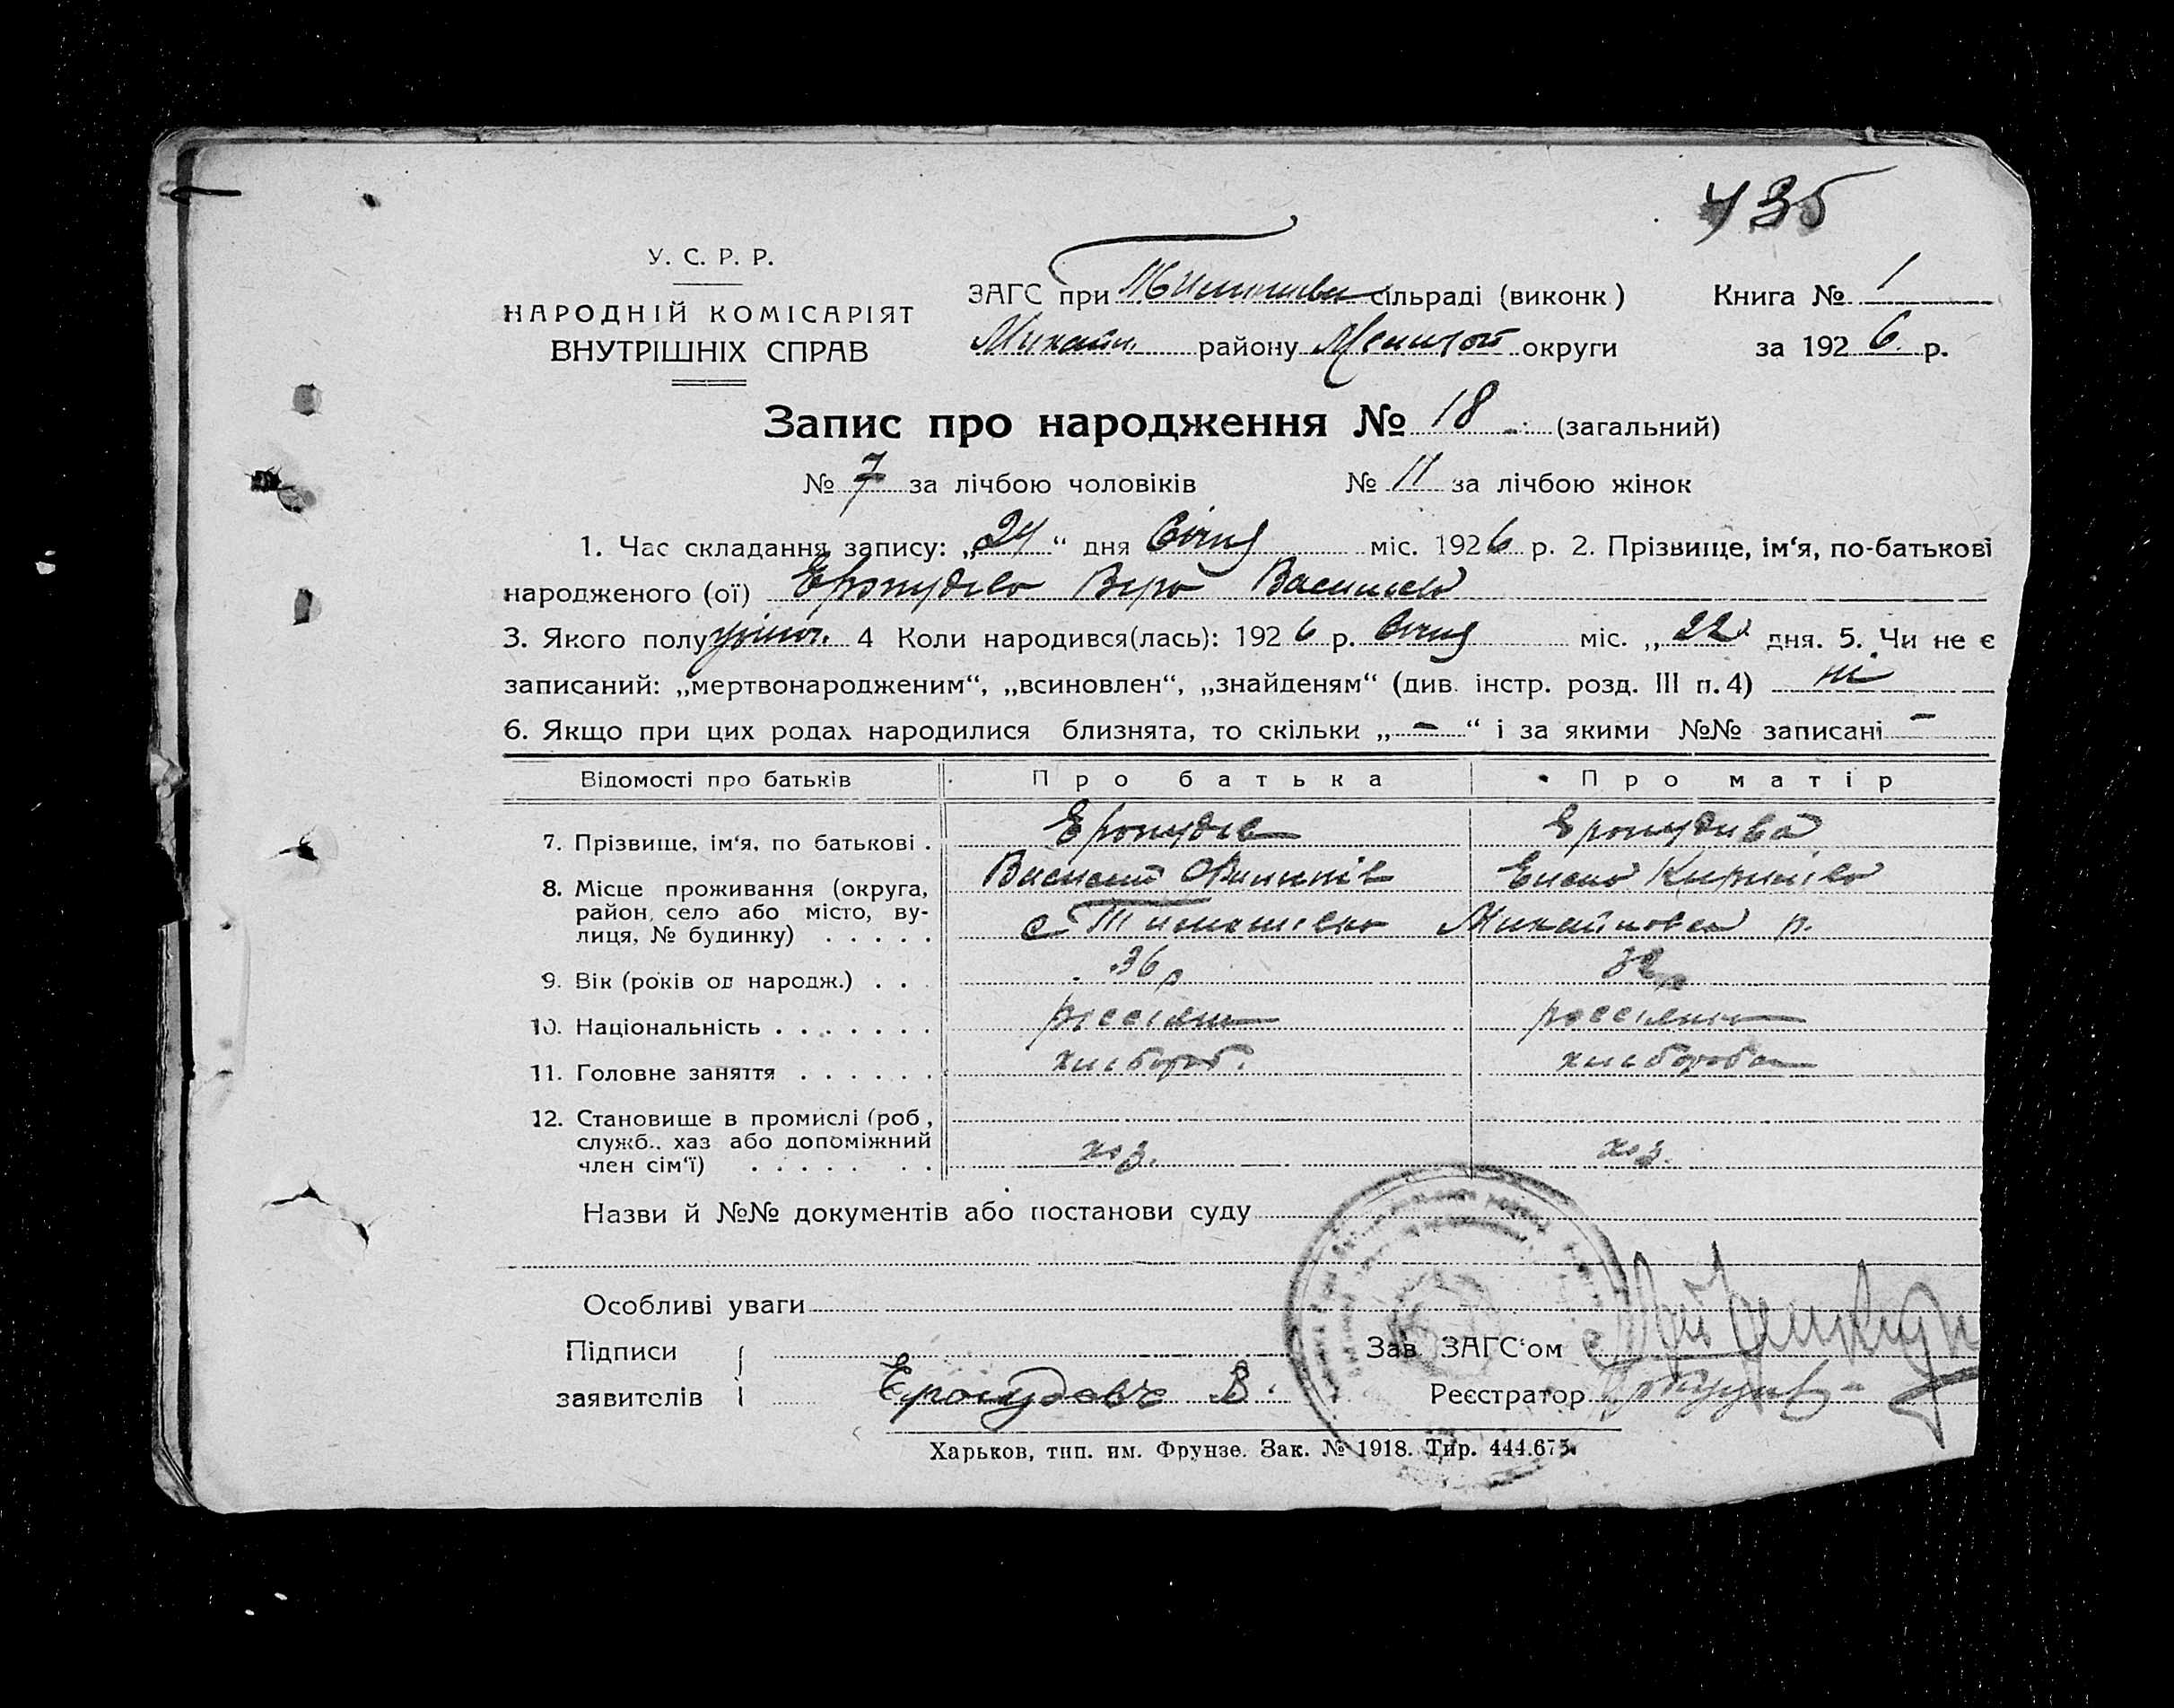 435
У. С. Р. Р.
НАРОДНІЙ КОМІСАРІЯТ
ВНУТРІШНІХ СПРАВ
ЗАГС при сільраді (виконк)
Книга № 1
Михайл. району Мелитоп округи
за 1926 р.
Запис про народження № 18 (загальний)
№ 7 за лічбою чоловіків № 11 за лічбою жінок
1. Час складання запису: „24“ дня Січня міс. 1926 р. 2. Прізвище, ім‘я, по-батькові
народженого (ої) Еропудова Вера Васильев
3. Якого полу жіноч. 4 Коли народився(лась): 1926 р. Січня міс. „22“ дня. 5. Чи не є
записаний: „мертвонародженим“, „всиновлен“, „знайденям“ (див. інстр. розд. III п. 4) ні
6. Якщо при цих родах народилися близнята, то скільки „-“ і за якими №№ записані -
Відомості про батьків Про батька Про матір
7. Прізвище, ім‘я, по батькові . Еропудів Еропудива
Василий Елена Кирилівна
8. Місце проживання (округа,
район, село або місто, ву-
лиця, № будинку) . . . . . с Тимошівка Михайловск р.
9. Вік (років од народж.) . . . 36 р 32 р
10. Національність . . . . . . . россіяни россіянка
11. Головне заняття . . . . . . хлібороб. хліборобка
12. Становище в промислі (роб.,
служб.. хаз або допоміжний
член сім‘ї) . . . . . . . хоз. хоз.
Назви й №№ документів або постанови суду
Особливі уваги
Підписи
заявителів Еропудовъ В.
Зав ЗАГС‘ом
Реєстратор
Харьков, тип. им. Фрунзе. Зак. № 1918. Тир. 444.675.